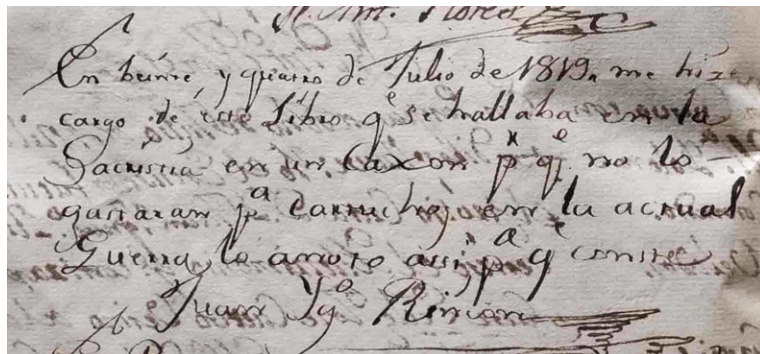 M. Ant. Flores
En beinte, y quatro de Julio de 1819, me hize
cargo de este Libro q.e se hallaba en la
Sacristia en un Caxon p.r q.e no lo
gastaran p.a Cartuchos, en la actual
Guerra, lo anoto assi, p.a q.e conste
Juan Yg.o Rincon